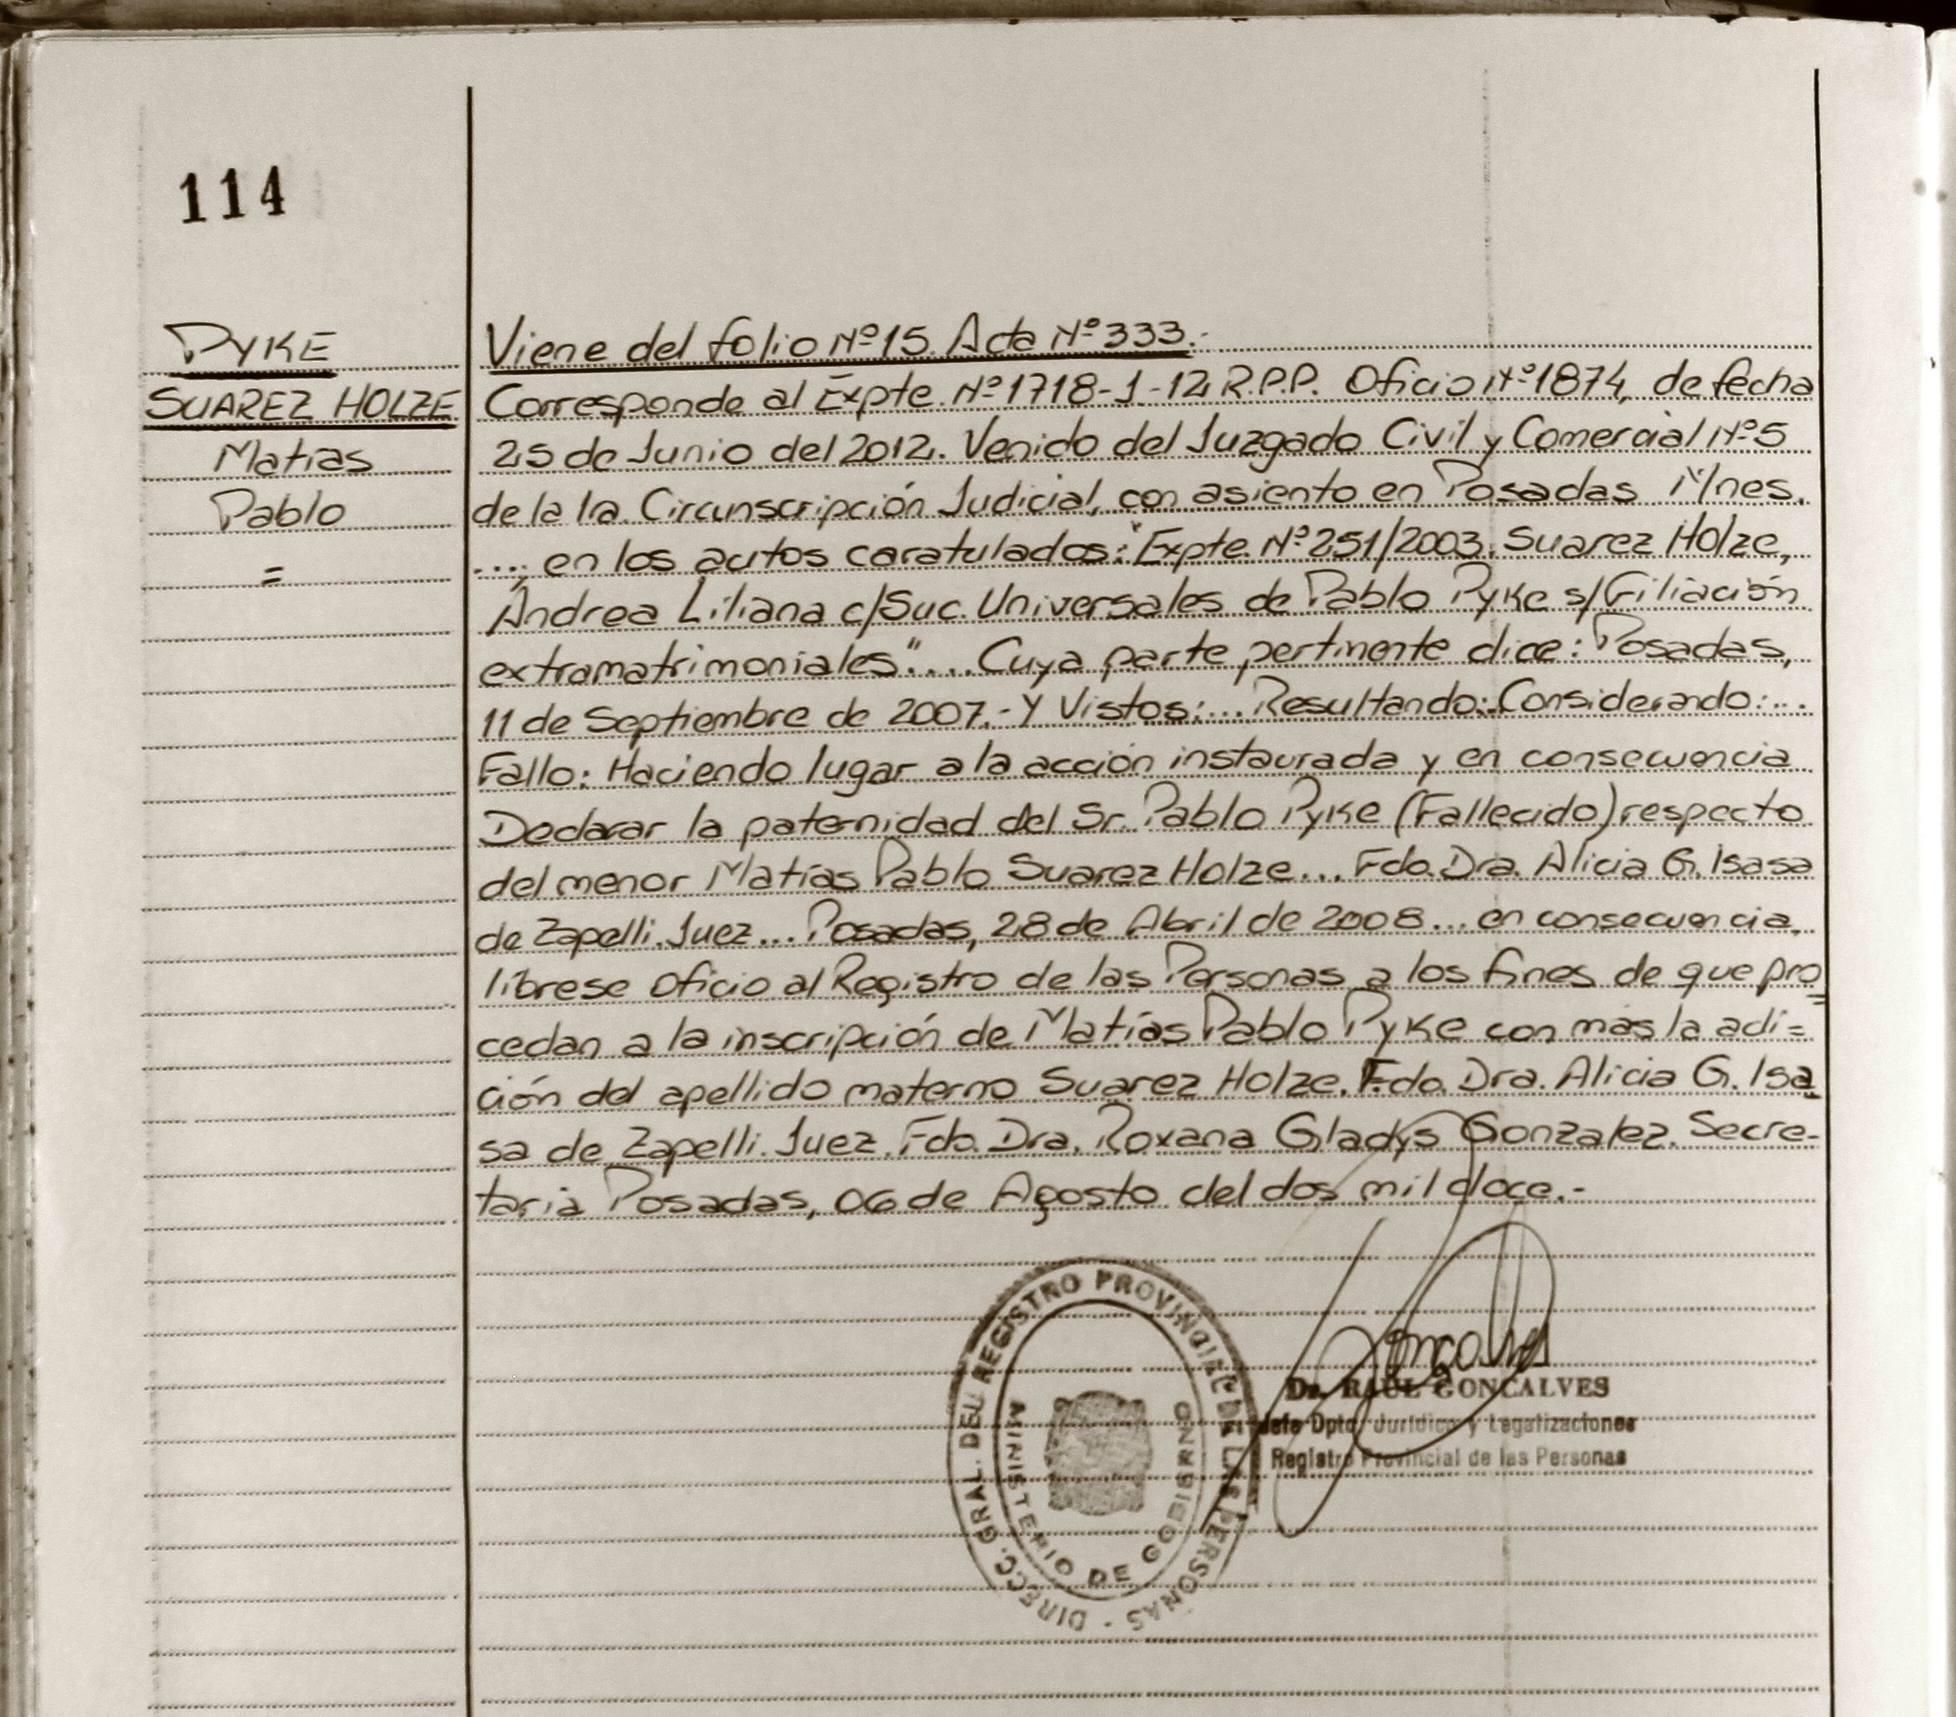 114
PYKE
SUAREZ HOLZE
Matías
Pablo
=
Viene del folio Nº15. Acta Nº333.-
Corresponde al Expte. Nº1718-1-12, R.P.P. Oficio Nº1874, de fecha
25 de Junio del 2012. Venido del Juzgado Civil y Comercial Nº5
de la 1ra. Circunscripción Judicial, con asiento en Posadas Mnes.
.... en los autos caratulados: "Expte. Nº251/2003. Suarez Holze,
Andrea Liliana c/Suc. Universales de Pablo Pyke s/Filiación
extramatrimoniales".... Cuya parte pertinente dice: Posadas,
11 de Septiembre de 2007.- Y Vistos:... Resultando:. Considerando:...
Fallo: Haciendo lugar a la acción instaurada y en consecuencia
Declarar la paternidad del Sr. Pablo Pyke (Fallecido) respecto
del menor Matías Pablo Suarez Holze... Fdo. Dra. Alicia G. Isasa
de Zapelli. Juez... Posadas, 28 de Abril de 2008... en consecuencia,
líbrese oficio al Registro de las Personas a los fines de que pro=
cedan a la inscripción de Matías Pablo Pyke con mas la adi=
ción del apellido materno Suarez Holze. Fdo. Dra. Alicia G. Isa
sa de Zapelli. Juez. Fdo. Dra. Roxana Gladys Gonzalez. Secre-
taria Posadas, 06 de Agosto del dos mil doce.-
DIRECC. GRAL. DEL REGISTRO PROVINCIAL DE LAS PERSONAS -
MINISTERIO DE GOBIERNO
Dr. RAUL GONCALVES
Jefe Dpto. Jurídico y Legalizaciones
Registro Provincial de las Personas